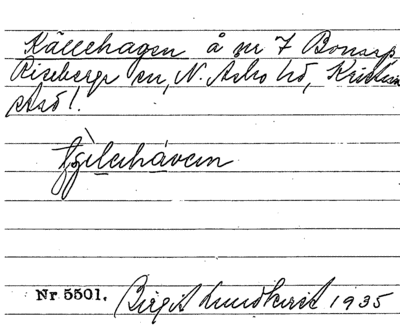 Källehagen å nr 7 Bonarp
Riseberga sn, N. Åsbo hd, Kristian
stad l.
Nr 5501. Birgit Lundkvist 1935